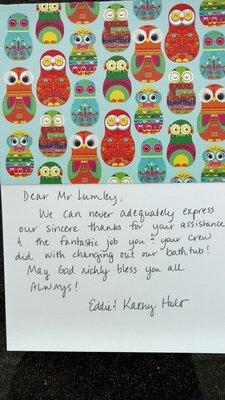 Dear Mr Lumley,
We can never adequately express
our sincere thanks for your assistance
& the fantastic job you & your crew
did with changing out our bathtub!
May God richly bless you all
ALWAYS!
Eddie & Kathy